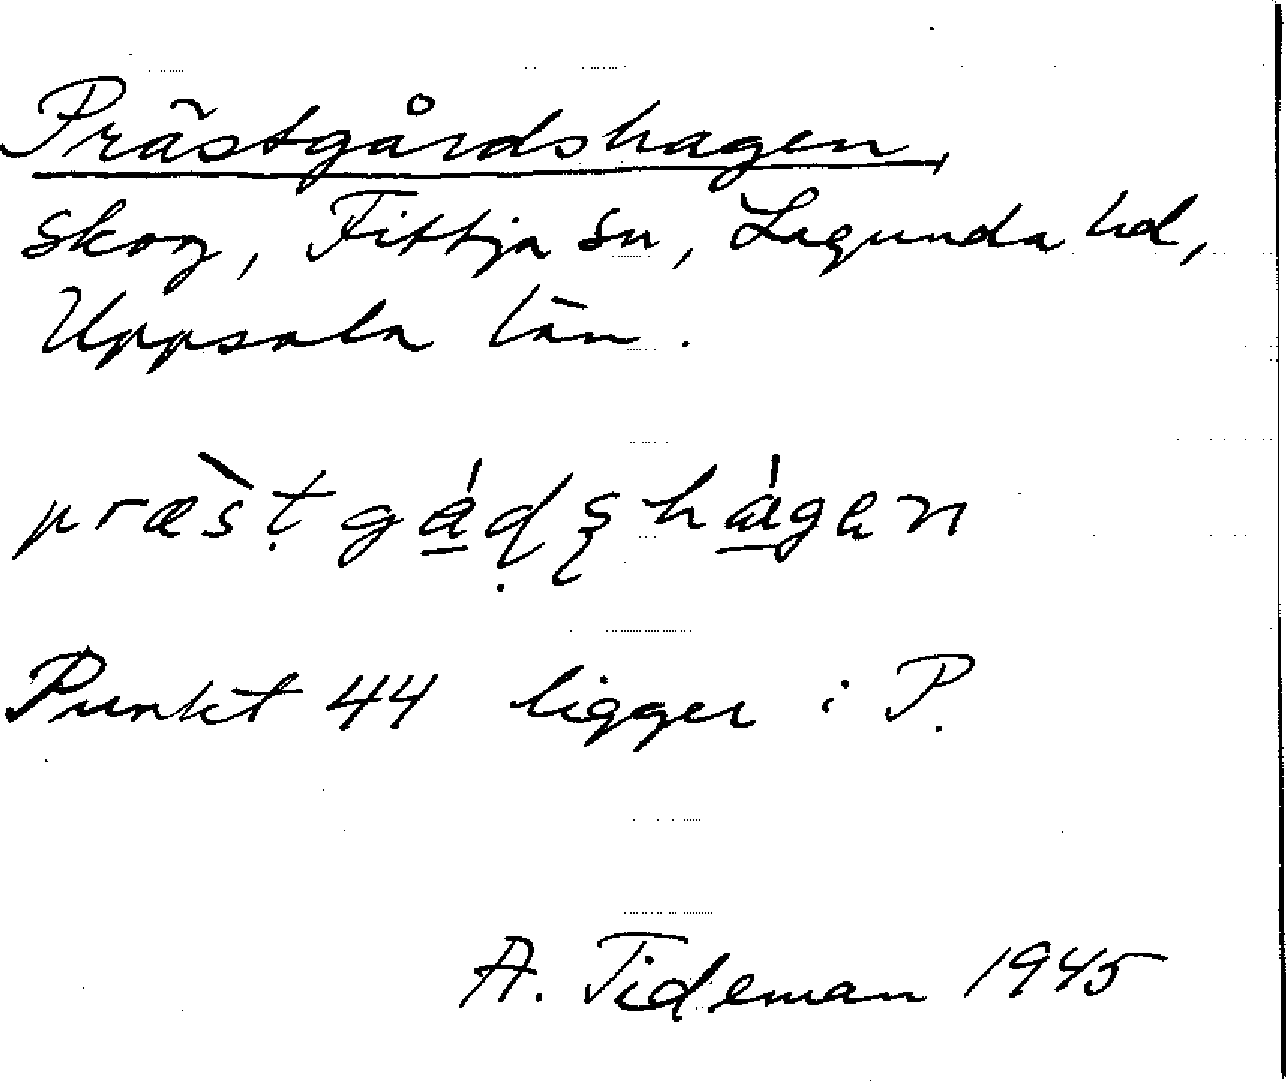 Prästgårdshagen,
skog, Fittja sn, Lagunda hd,
Uppsala län.
præ̀sṭgá̱ḍşhá̱gen
Punkt 44 ligger i P.
A. Tideman 1945